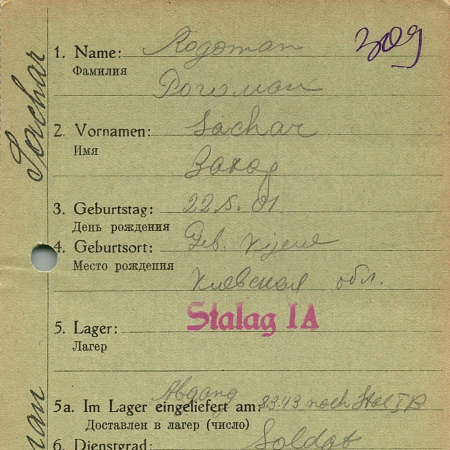 309
Sachar
1. Name: Rogoman
Фамилия Рогоман
2. Vornamen: Sachar
Имя Захар
3. Geburtstag: 22.5.01.
День рождения
4. Geburtsort: Geb. Kijew
Место рождения Киевская обл.
Stalag IA
5. Lager:
Лагер
Abgang
5a. Im Lager eingeliefert am: 23.43 nach Stal IB
Доставлен в лагер (число)
6. Dienstgrad: Soldat